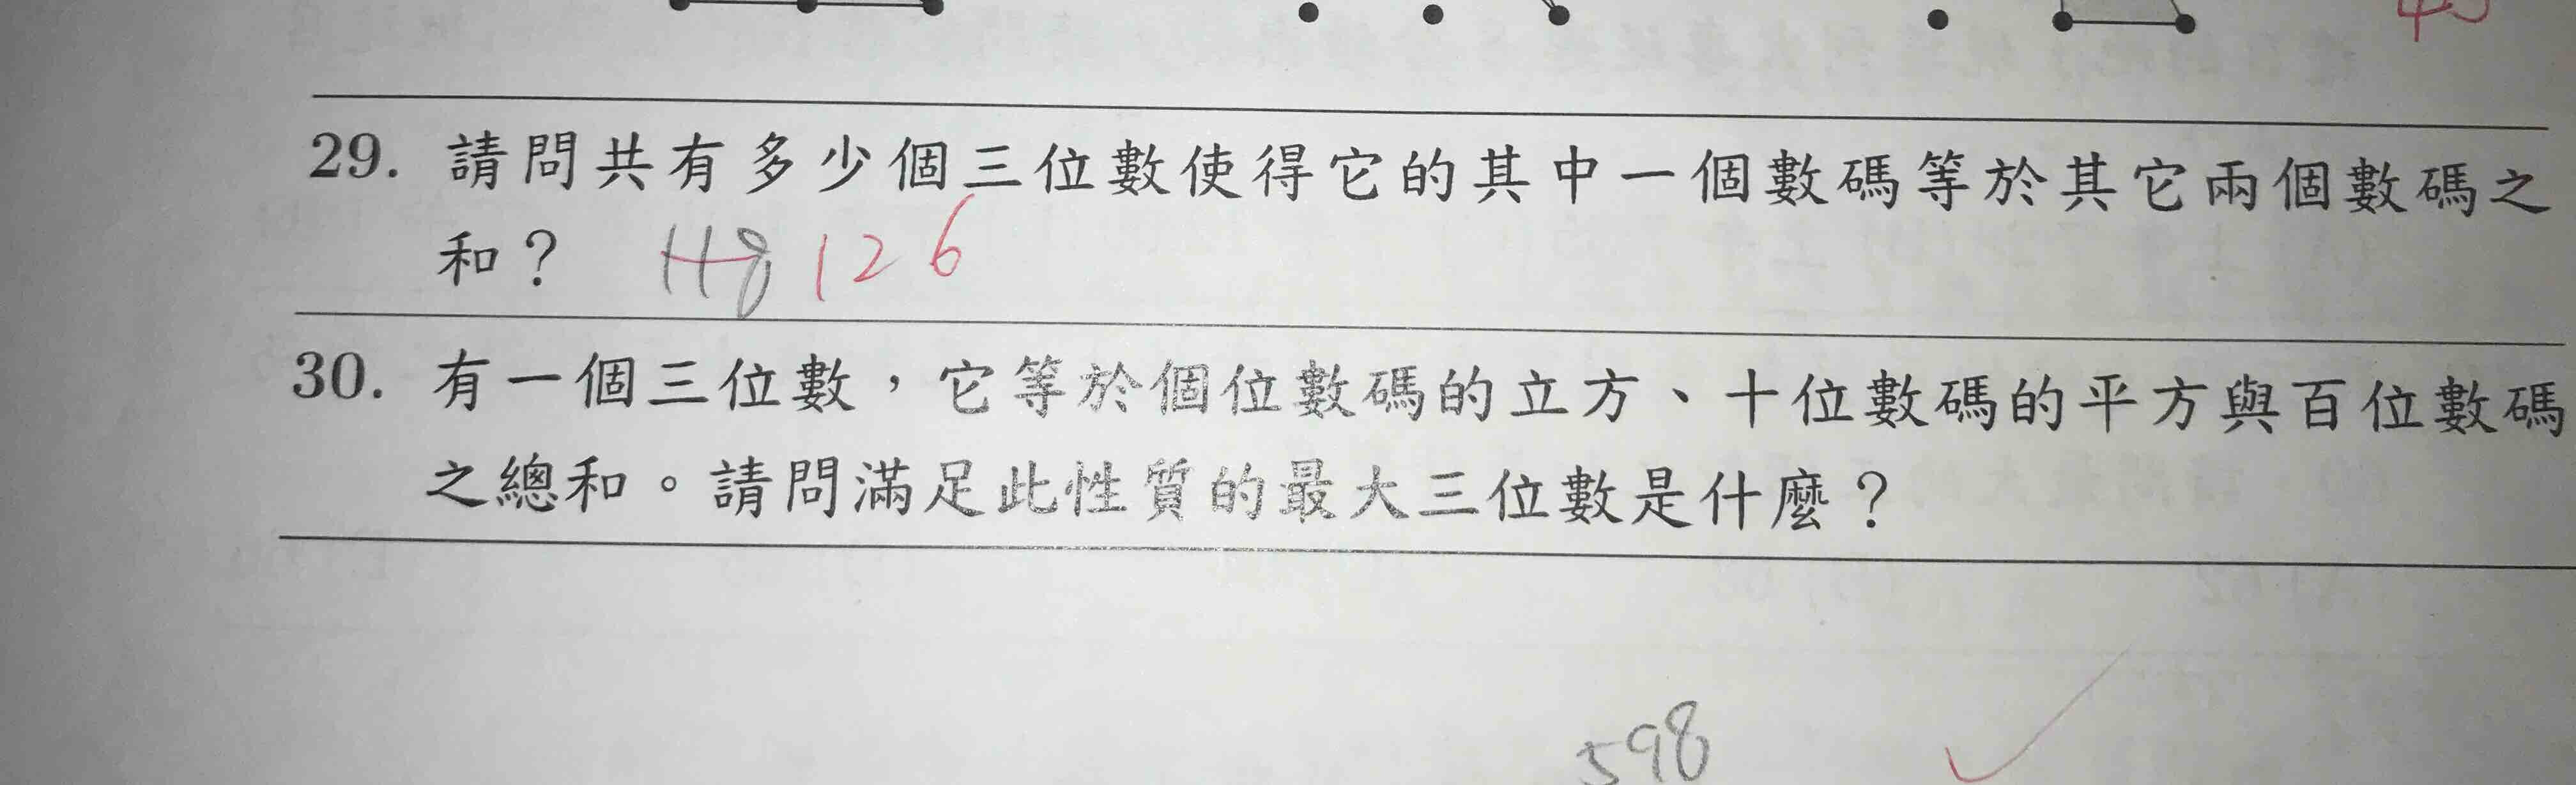 29. 請問共有多少個三位數使得它的其中一個數碼等於其它兩個數碼之
和？ 118 126
30. 有一個三位數，它等於個位數碼的立方、十位數碼的平方與百位數碼
之總和。請問滿足此性質的最大三位數是什麼？
598